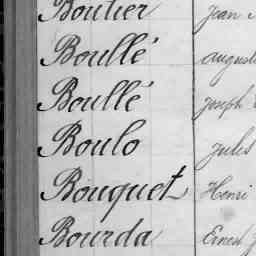 Boutier Jean
Boullé
Boullé Joseph
Boulo Jules
Bouquet Henri
Bourda Ernest